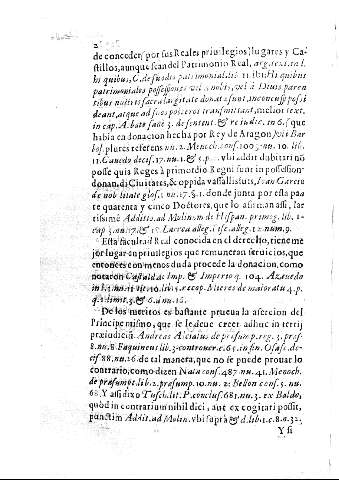 2
de conceder, por sus Reales priuilegios, lugares y Ca-
stillos, aunque sean del Patrimonio Real, arg. text. in l.
his quibus, C. de fundis patrimonialib. 11. ibi: Hi quibus
patrimoniales possessiones vel à nobis, vel à Diuis paren
tibus nostris sacra largitate donatæ sunt, inconcussè possi
deant, atque ad suos posteros transmittant, melior text.
in cap. Abbate sanè 3. de sentent. & re iudic. in 6. que
habla en donacion hecha por Rey de Aragon, vbi Bar
bos. plures referens nu. 2. Menoch. cons. 1003. nu. 10. lib.
11. Canedo decis. 17. nu. 1. & 5. p. vbi addit dubitari no
posse quis Reges à primordio Regni sunt in possession
donandi Ciuitates, & oppida vassallis suis, Ioan Garcia
de nobilitate glos. 1. nu. 17. §. 1. donde junta por esta par
te quarenta y cinco Doctores, que lo afirman assi, la-
tissimè Additio. ad Molinam de Hispan. primog. lib. 1.
cap. 3. nu. 7. & 17. Larrea alleg. 1. & alleg. 12. num. 9.
Esta facultad Real conocida en el derecho, tiene me
jor lugar en priuilegios que remuneran seruicios, que
entonces con menos duda procede la donacion, como
notaron Castald. de Imp. & Imperio q. 104. Azeuedo
in l. 1. nu. 11. tit. 10. lib. 5. recop. Mieres de maioratu 4. p.
q. 1. limit. 3. & 6. à nu. 16.
De los meritos es bastante prueua la assercion del
Principe mismo, que se le deue creer adhuc in tertij
præiudiciū. Andreas Alciatus de præsump. reg. 3. præs-
8. nu. 8. Faquineus lib. 3. controuer. c. 65. in fin. Osasc. de-
cis. 88. nu. 26. de tal manera, que no se puede prouar lo
contrario, como dizen Nata cons. 487. nu. 41. Menoch.
de præsumpt. lib. 2. præsump. 10. nu. 2. Bellon cons. 3. nu.
68. Y assi dixo Tusch. lit. P. conclus. 681. nu. 3. ex Baldo,
quòd in contrarium nihil dici, aut excogitari possit,
punctim Addit. ad Molin. vbi suprà & d. lib. 1. c. 8. n. 32.
Y si